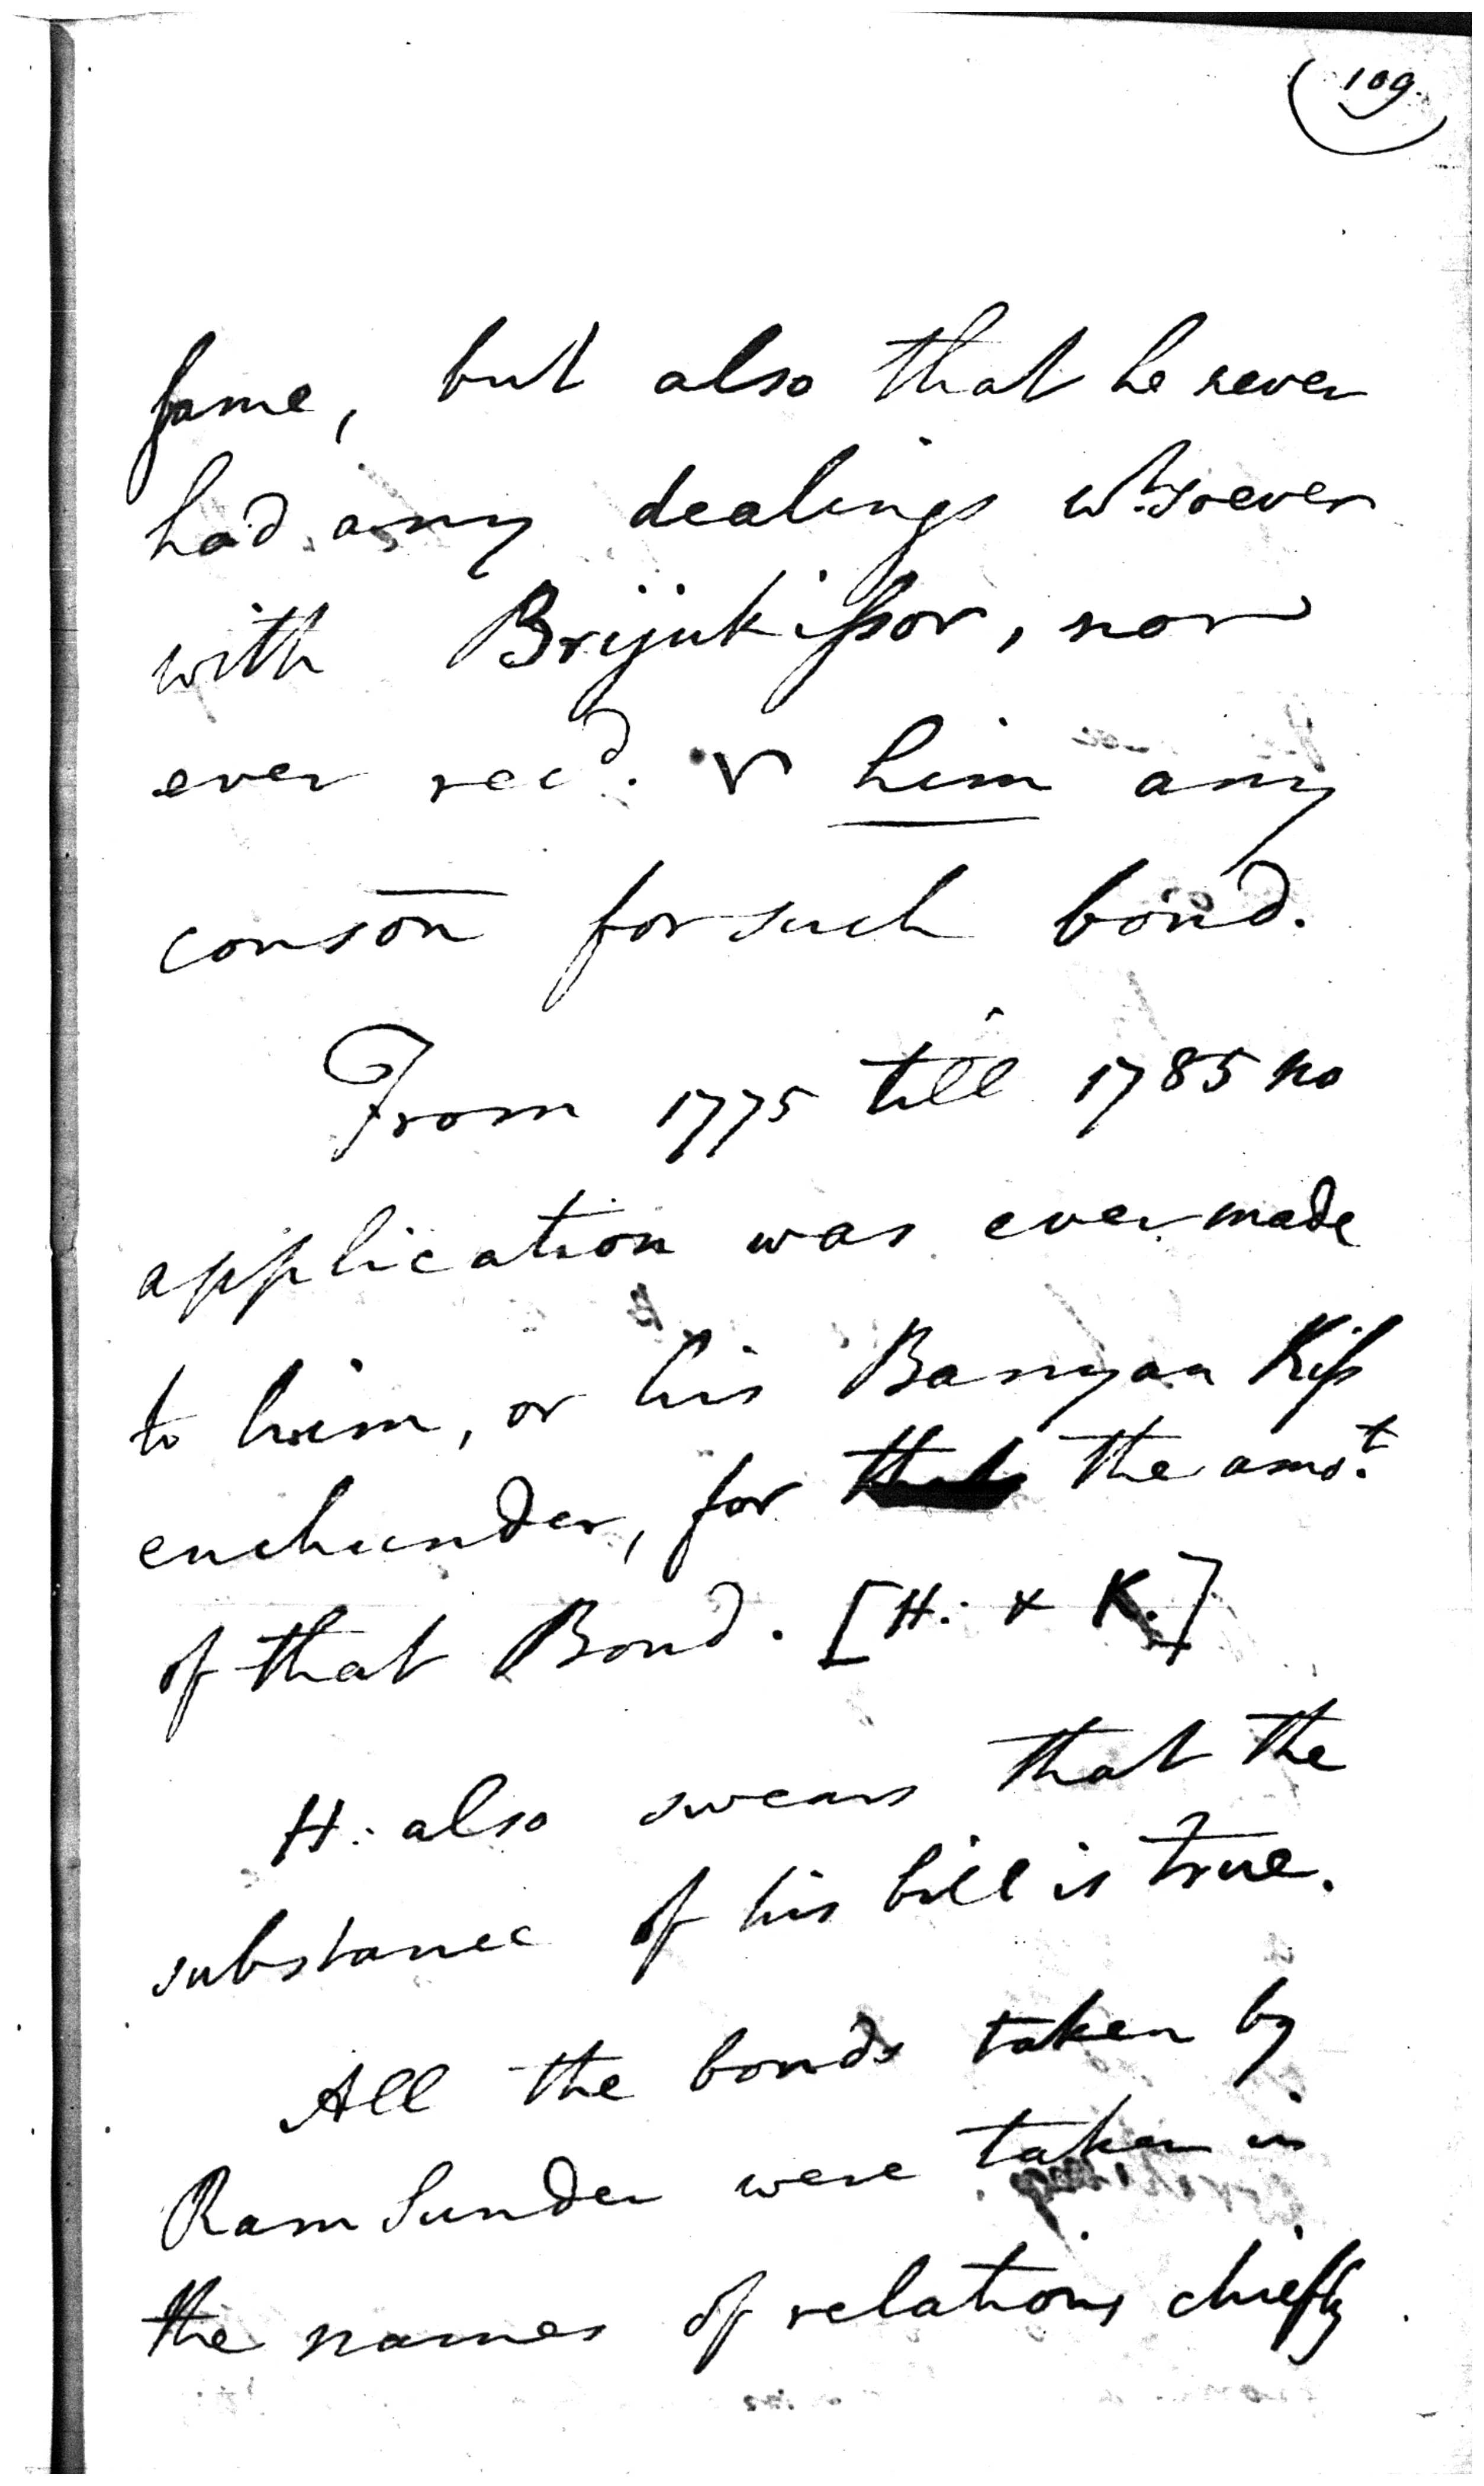 109.
same, but also that he never
had any dealings wt.soever
with Brijukissor, nor
ever recd. him any
conson for such bond.
From 1775 till 1785 no
application was ever made
to him, or his Banyan Kiss
enchunder, for the amot.
of that Bond. [H: & K.]
H: also swears that the
substance of his bill is true.
All the bonds taken by
Ram Sunder were taken in
the names of relations chiefly